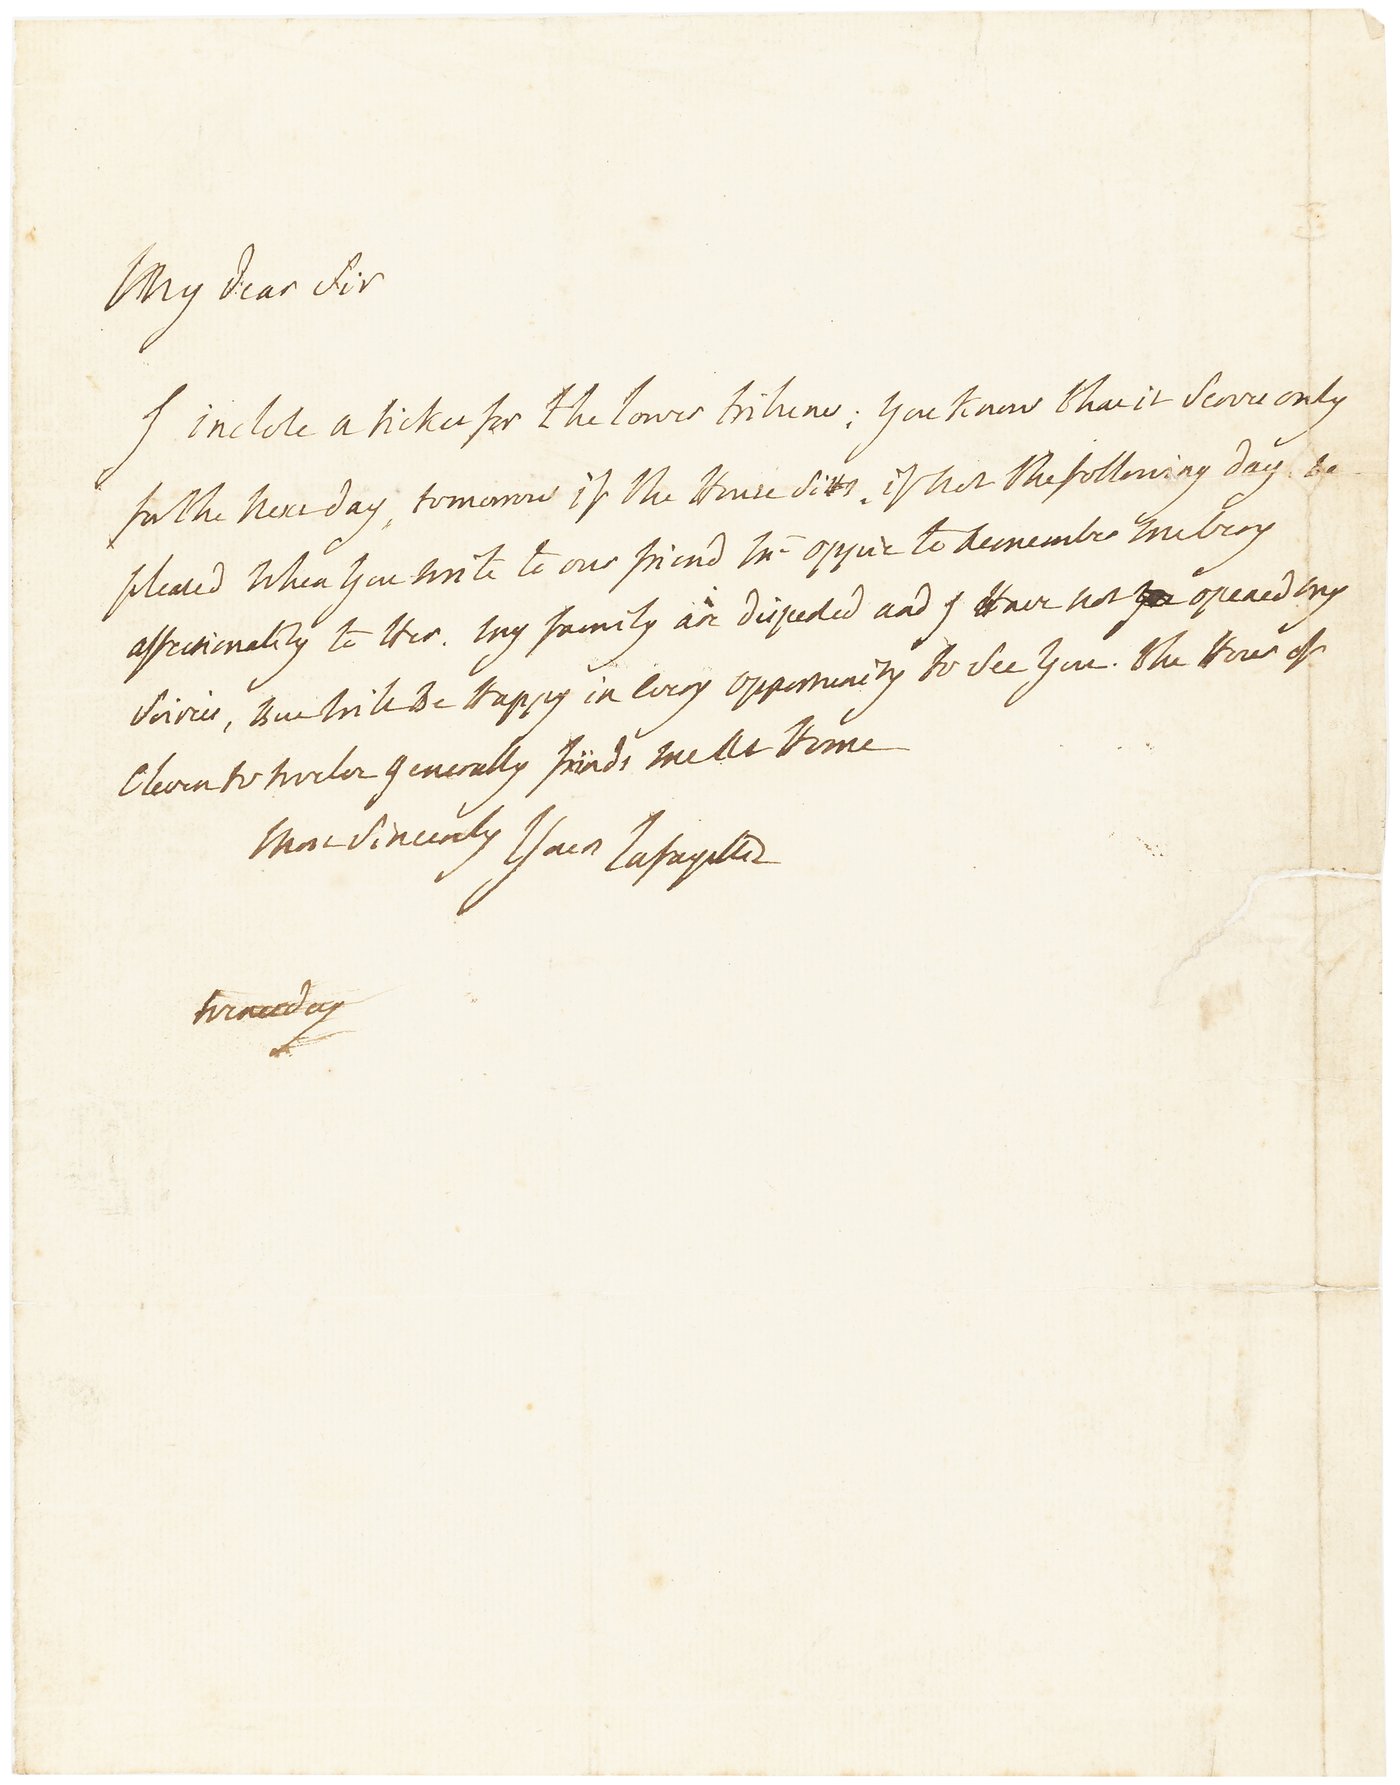 My dear Sir
I inclose a ticket for the lower tribune; you know that it serves only
for the next day, tomorrow if the House sits, if not the following day. be
pleased when you write to our friend Mrs Oppie to Remember me very
affectionately to Her. my family are dispersed and I Have not opened my
soirées, But will Be Happy in every opportunity to see you. the Hour of
eleven to twelve generally finds me At Home
most sincerely Yours Lafayette